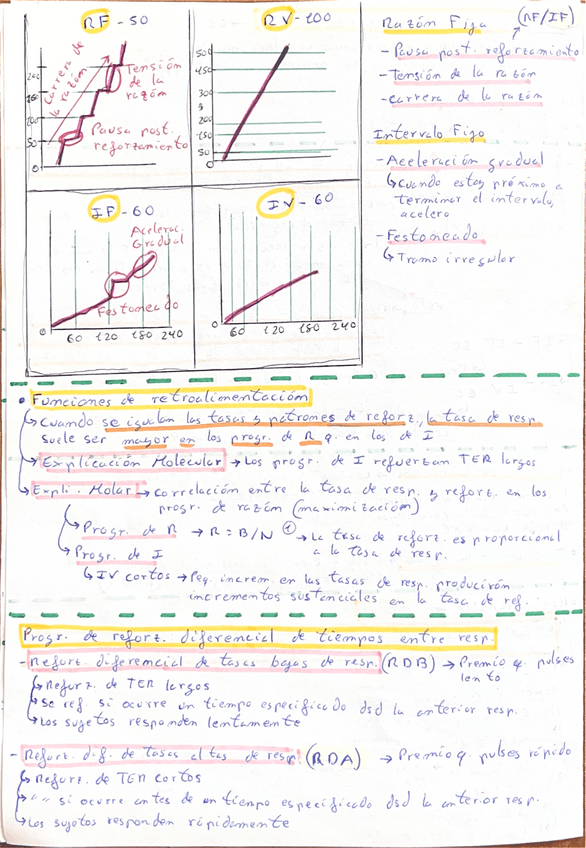 RF - 50
250
200
150
100
50
0
Carrera de la razón
Tensión
de la
razón
Pausa post.
reforzamiento
RV - 100
500
50
0
IF - 60
Acelerac.
Gradual
Festoneado
0
60 120 180 240
IV - 60
0
60 120 180 240
Razón Fija (RF/IF)
- Pausa post. reforzamiento
- Tensión de la razón
- carrera de la razón
Intervalo Fijo
- Aceleración gradual
↳ cuando estoy próximo a
terminar el intervalo,
acelero
- Festoneado
↳ Tramo irregular
• Funciones de retroalimentación
↳ Cuando se igualan las tasas y patrones de reforz., la tasa de resp.
suele ser mayor en los progr. de R q. en los de I
↳ Explicación Molecular → Los progr. de I refuerzan TER largos
↳ Expli. Molar → correlación entre la tasa de resp. y reforz. en los
progr. de razón (maximización)
↳ Progr. de R → R = B/N ① → La tasa de reforz. es proporcional
a la tasa de resp.
↳ Progr. de I
↳ IV cortos → Peq. increm. en las tasas de resp. producirán
incrementos sustanciales en la tasa de ref.
Progr. de reforz. diferencial de tiempos entre resp.
- Reforz. diferencial de tasas bajas de resp. (RDB) → Premio q. pulses
lento
↳ Reforz. de TER largos
↳ Se ref. si ocurre un tiempo especificado dsd la anterior resp.
↳ Los sujetos responden lentamente
- Reforz. dif. de tasas altas de resp. (RDA) → Premio q. pulses rápido
↳ Reforz. de TER cortos
↳ " " si ocurre antes de un tiempo especificado dsd la anterior resp.
↳ Los sujetos responden rápidamente